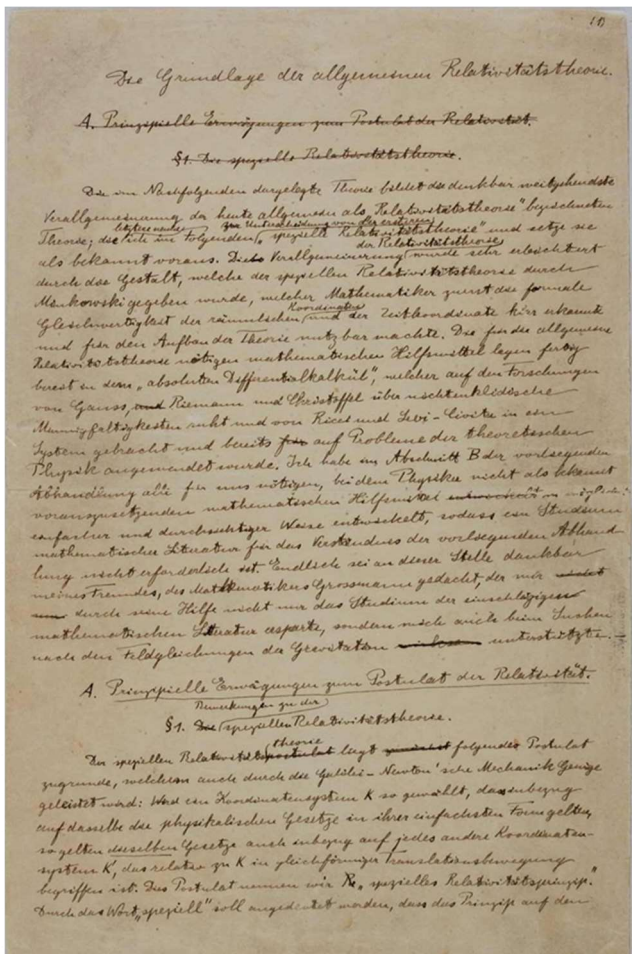 (1)
Die Grundlage der allgemeinen Relativitätstheorie.
A. Prinzipielle Erwägungen zum Postulat der Relativität.
§1. Die spezielle Relativitätstheorie.
Die im Nachfolgenden dargelegte Theorie bildet die denkbar weitgehendste
Verallgemeinerung der heute allgemein als „Relativitätstheorie" bezeichneten
letztere nenne zur Unterscheidung von der ersteren
Theorie; die ich im Folgenden „spezielle Relativitätstheorie" und setze sie
der Relativitätstheorie
als bekannt voraus. Die Verallgemeinerung wurde sehr erleichtert
durch die Gestalt, welche der speziellen Relativitätstheorie durch
Minkowski gegeben wurde, welcher Mathematiker zuerst die formale
Koordinaten
Gleichwertigkeit der räumlichen und der Zeitkoordinate klar erkannte
und für den Aufbau der Theorie nutzbar machte. Die für die allgemeine
Relativitätstheorie nötigen mathematischen Hilfsmittel lagen fertig
bereit in dem „absoluten Differentialkalkül", welcher auf den Forschungen
von Gauss, und Riemann und Christoffel über nichteuklidische
Mannigfaltigkeiten ruht und von Ricci und Levi-Civita in ein
System gebracht und bereits auf Probleme der theoretischen
Physik angewendet wurde. Ich habe im Abschnitt B der vorliegenden
Abhandlung alle für uns nötigen, bei dem Physiker nicht als bekannt
vorauszusetzenden mathematischen Hilfsmittel in möglichst
einfacher und durchsichtiger Weise entwickelt, sodass ein Studium
mathematischer Literatur für das Verständnis der vorliegenden Abhand-
lung nicht erforderlich ist. Endlich sei an dieser Stelle dankbar
meines Freundes, des Mathematikers Grossmann gedacht, der mir
durch seine Hilfe nicht nur das Studium der einschlägigen
mathematischen Literatur ersparte, sondern mich auch beim Suchen
nach den Feldgleichungen der Gravitation unterstützte.
A. Prinzipielle Erwägungen zum Postulat der Relativität.
Bemerkungen zu der
§1. Die speziellen Relativitätstheorie.
theorie
Der speziellen Relativitätspostulat liegt folgendes Postulat
zugrunde, welchem auch durch die Galilei-Newton'sche Mechanik Genüge
geleistet wird: Wird ein Koordinatensystem K so gewählt, dass inbezug
auf dasselbe die physikalischen Gesetze in ihrer einfachsten Form gelten,
so gelten dieselben Gesetze auch inbezug auf jedes andere Koordinaten-
system K', das relativ zu K in gleichförmiger Translationsbewegung
begriffen ist. Das Postulat nennen wir „spezielles Relativitätsprinzip."
Durch das Wort „speziell" soll angedeutet werden, dass das Prinzip auf den